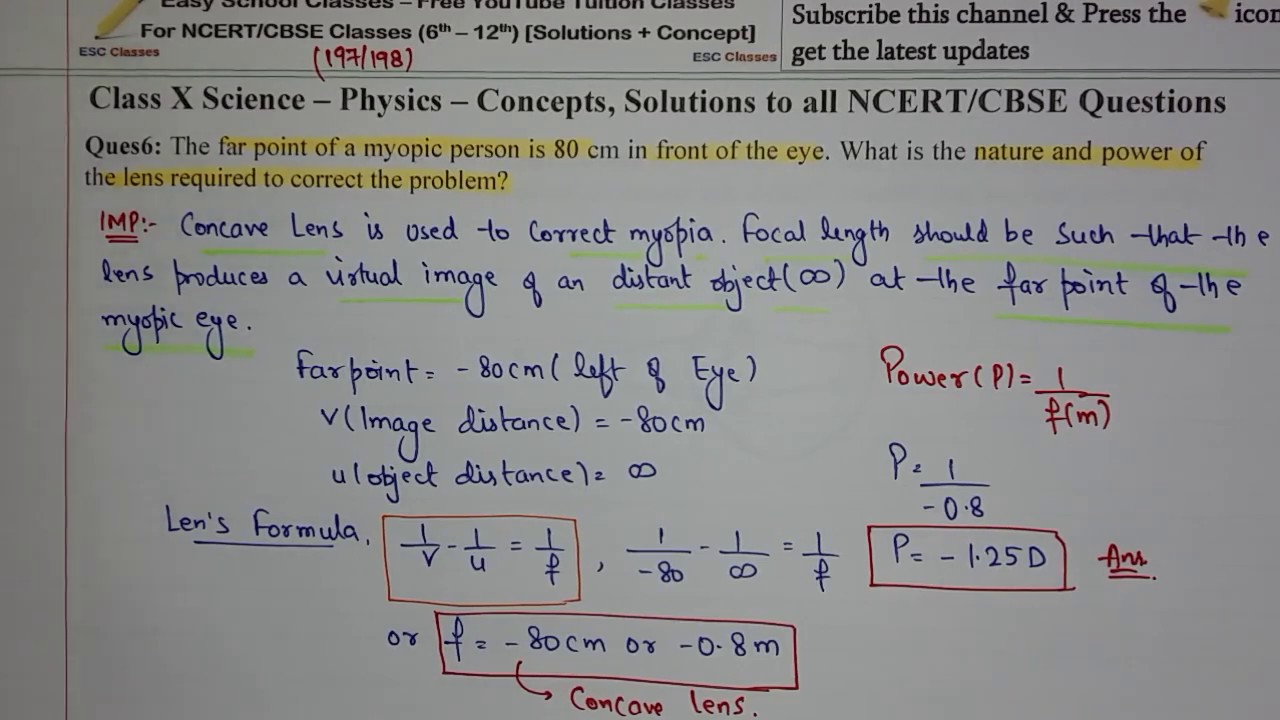 Easy School Classes – Free YouTube Tuition Classes
For NCERT/CBSE Classes (6th – 12th) [Solutions + Concept]
ESC Classes
(197/198)
ESC Classes
Subscribe this channel & Press the icon
get the latest updates
Class X Science – Physics – Concepts, Solutions to all NCERT/CBSE Questions
Ques6: The far point of a myopic person is 80 cm in front of the eye. What is the nature and power of
the lens required to correct the problem?
IMP:- Concave Lens is used to correct myopia. Focal length should be such that the
lens produces a virtual image of an distant object(∞) at the far point of the
myopic eye.
Far point = -80cm (left of Eye)
v(Image distance) = -80cm
u(object distance) = ∞
Len's Formula, 1/v - 1/u = 1/f , 1/-80 - 1/∞ = 1/f
or f = -80cm or -0.8m
Concave lens.
Power(P) = 1/f(m)
P = 1/-0.8
P = -1.25D Ans.